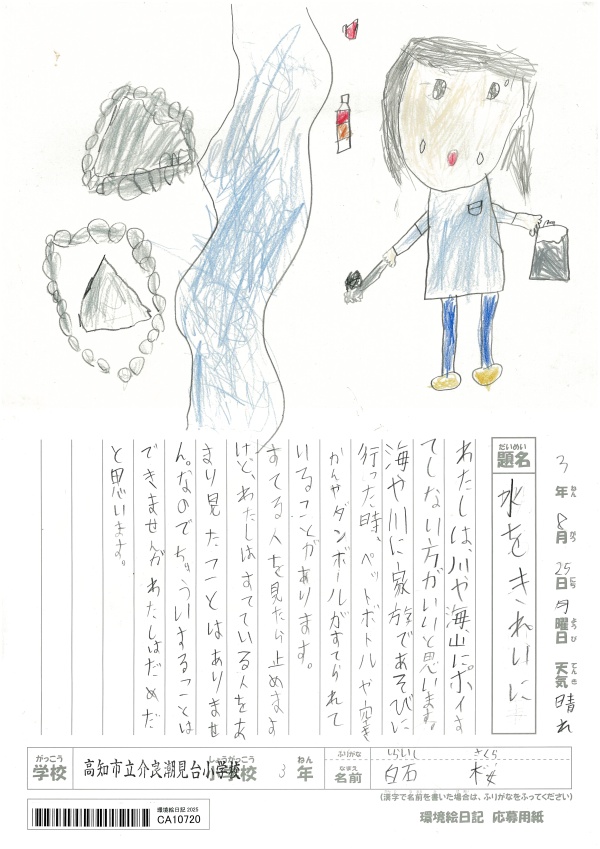 3年 8月 25日 月曜日 天気 晴れ
ねん がつ にち ようび てんき
だいめい
題名 水をきれいに
わたしは、川や海山にポイす
てしない方がいいと思います。
海や川に家族であそびに
行った時、ペットボトルや空き
かんやダンボールがすてられて
いることがあります。
すてる人を見たら止めます
けど、わたしはすてている人をあ
まり見たことはありませ
ん。なのでちゅういすることは
できませんがわたしはだめだ
と思います。
がっこう しょうがっこう ねん ふりがな しらいし さくら
学校 高知市立介良潮見台小学校 3年 なまえ 名前 白石 桜
(漢字で名前を書いた場合は、ふりがなをふってください)
環境絵日記 2025
CA10720
環境絵日記 応募用紙